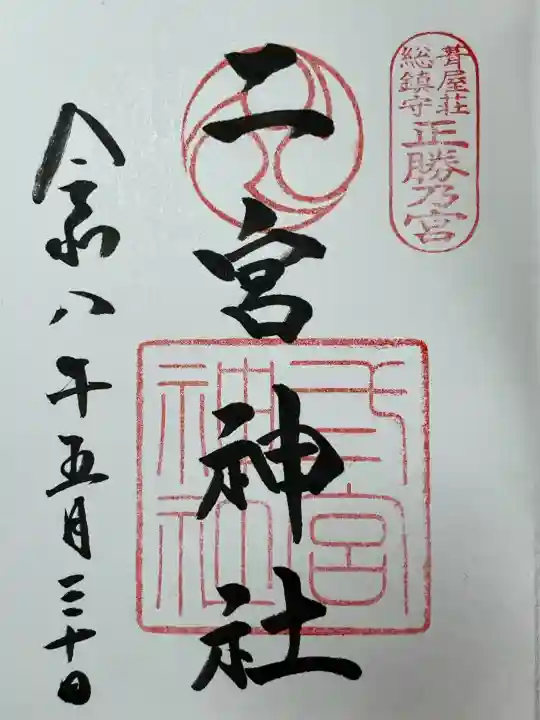 葺屋荘
総鎮守
正勝乃宮
二宮神社
弌宮神社
令和八年五月三十日